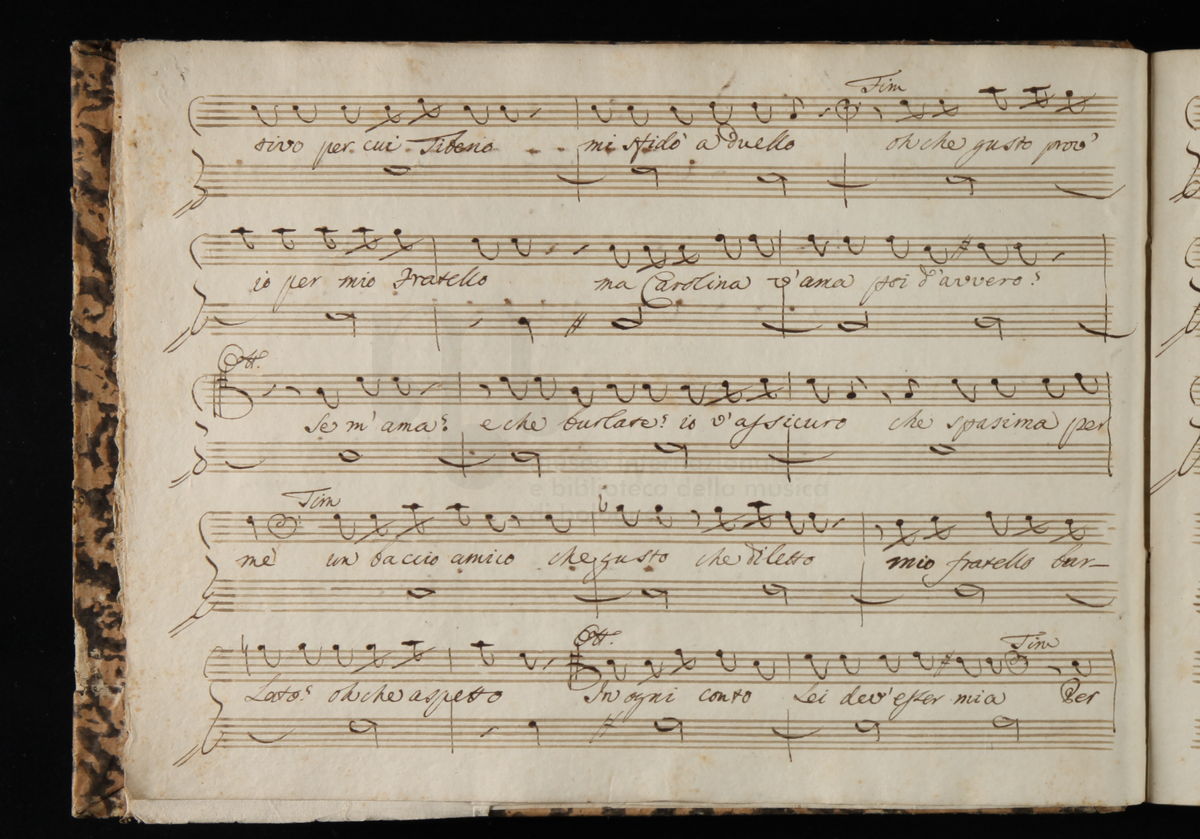 Tim
tivo per cui Fideno mi sfidò a duello oh che gusto prov'
io per mio Fratello ma Carolina v'ama poi d'avvero?
Ott.
Se m'ama? e che burlate? io v'assicuro che spasima per
e biblioteca della musica
Tim
me un baccio amico che gusto che diletto mio fratello bur-
Ott. Tim
lato? oh che aspetto In ogni conto Lei dev'esser mia Per